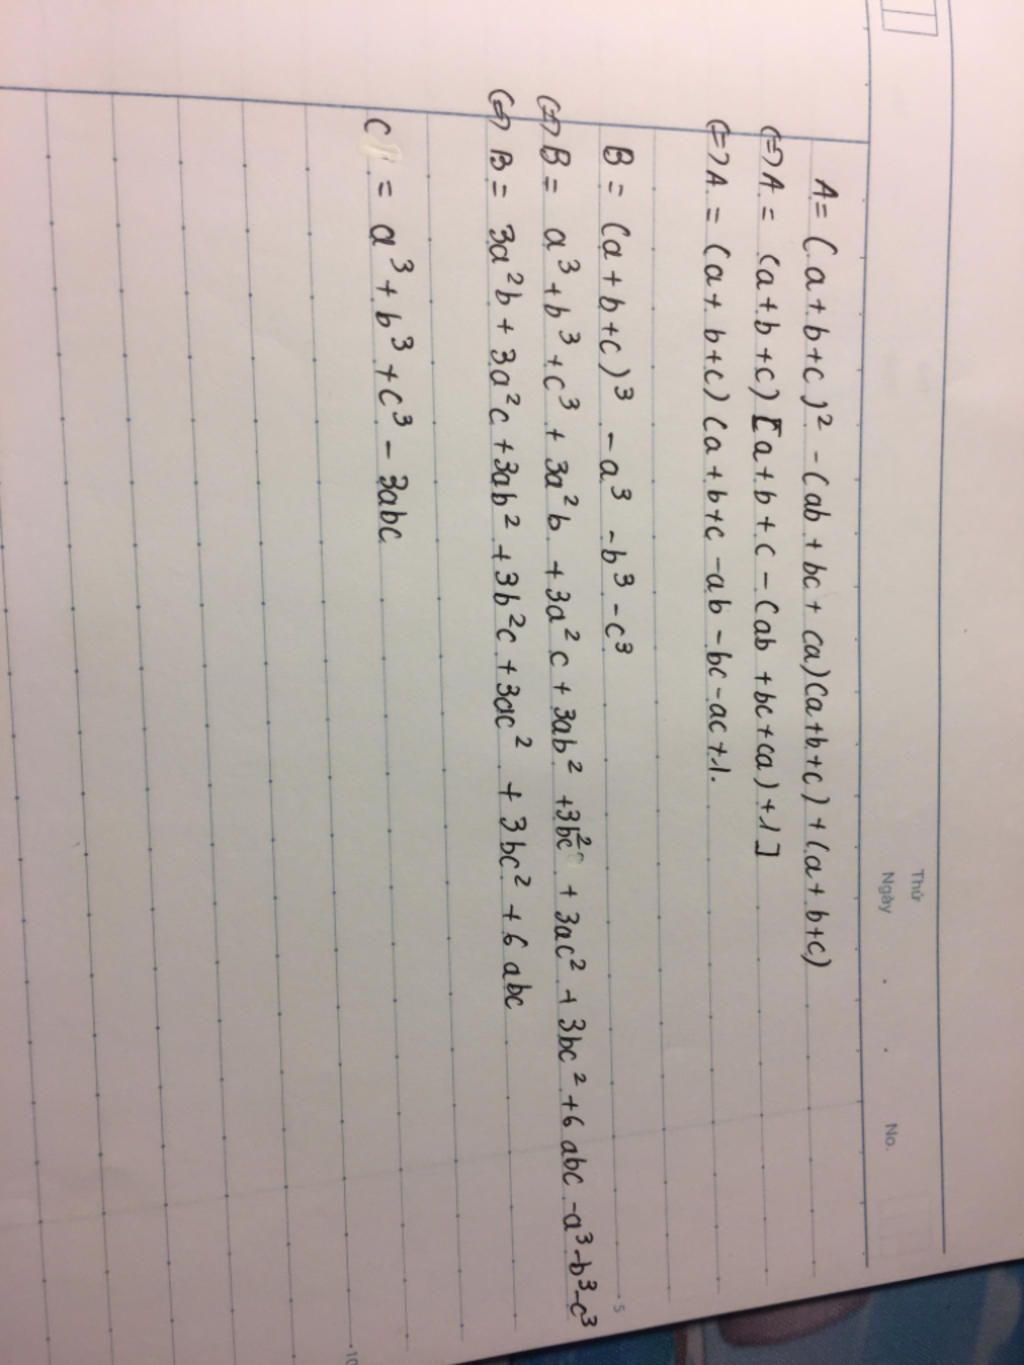 Thứ
Ngày . . No.
A = (a+b+c)² - (ab+bc+ca)(a+b+c) + (a+b+c)
(=) A = (a+b+c)[a+b+c - (ab+bc+ca)+1]
(=) A = (a+b+c)(a+b+c -ab -bc -ac+1.
B = (a+b+c)³ - a³ - b³ - c³
5
(=) B = a³+b³+c³ + 3a²b + 3a²c + 3ab² + 3b²c + 3ac² + 3bc² + 6abc - a³ - b³ - c³
(=) B = 3a²b + 3a²c + 3ab² + 3b²c + 3ac² + 3bc² + 6abc
C = a³ + b³ + c³ - 3abc
10